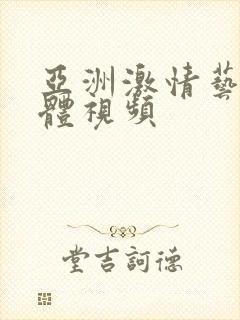 亞洲激情藝
體視頻
堂吉訶德